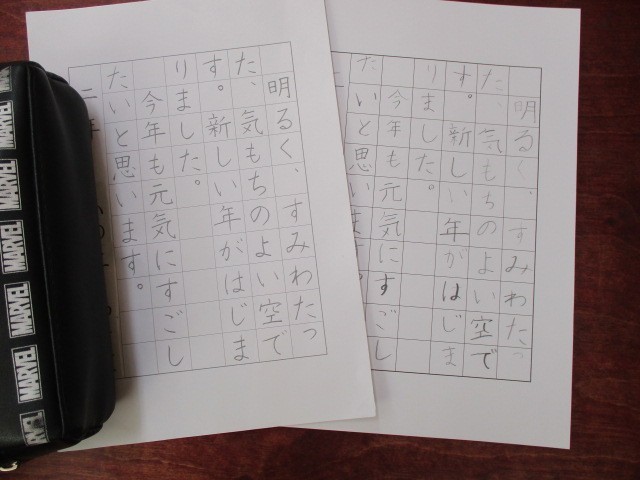 明るく、すみわたっ
た、気もちのよい空で
す。新しい年がはじま
りました。
今年も元気にすごし
たいと思います。
二年
明るく、すみわたっ
た、気もちのよい空で
す。新しい年がはじま
りました。
今年も元気にすごし
たいと思います
MARVEL
MARVEL
MARVEL
MARVEL
MARVEL